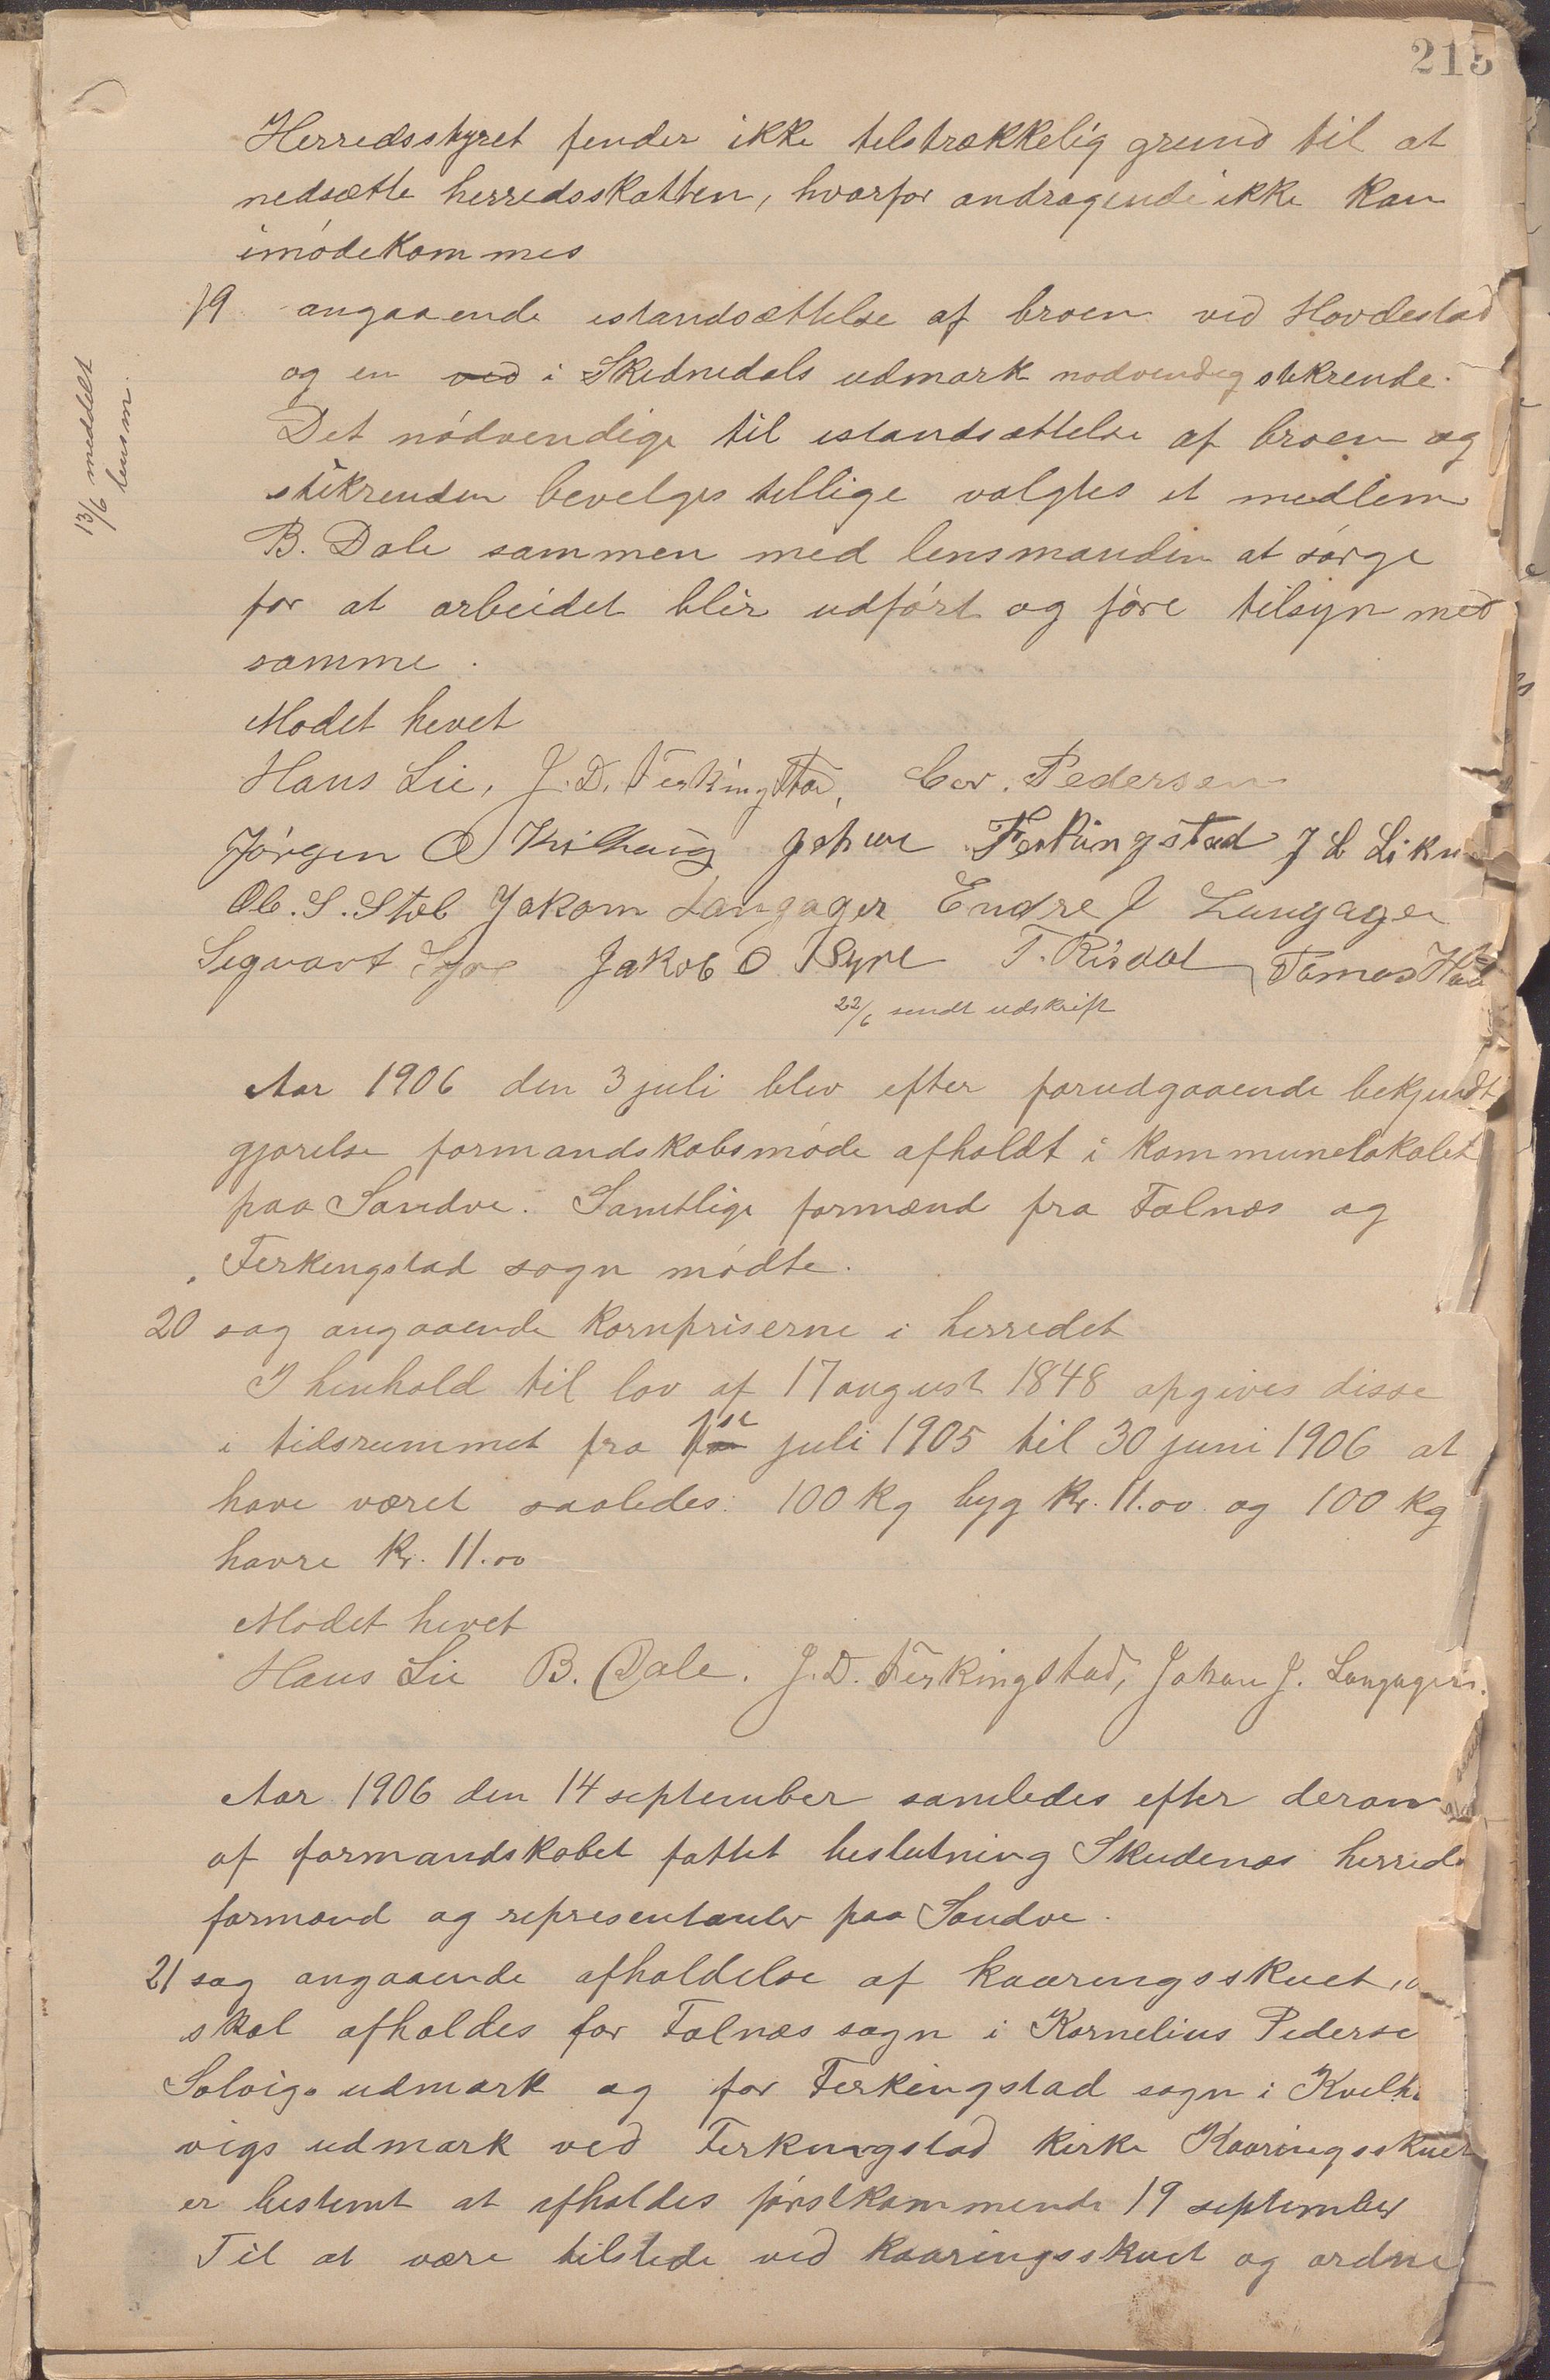 215
Herredsstyret finder ikke tilstrækkelig grund til at
nedsætte herredsskatten, hvorfor andragende ikke kan
imødekommes
19 angaaende istandsættelse af broen ved Hovdestad
og en ved i Skednedals udmark nødvendig stikrende.
Det nødvendige til istandsættelse af broen og
stikrenden bevelges tillige valgtes et medlem
B. Dale sammen med lensmanden at sørge
for at arbeidet blir udført og føre tilsyn med
samme.
13/6 meddelt
lensm.
Mødet hevet
Hans Lie, J. D. Ferkingstad, Cor. Pedersen
Jørgen O Kvilhaug Johan Ferkingstad J L Likn
Ol. S. Stol Jakom Langager Endre J Langager
Sigvart Syre Jakob O Syre T. Risdal Tomas
22/6 sendt udskrift
Aar 1906 den 3 juli blev efter forudgaaende bekjendt
gjørelse formandskabsmøde afholdt i kommunelokalet
paa Sandve. Samtlige formænd fra Falnæs og
Ferkingstad sogn mødte.
20 sag angaaende kornpriserne i herredet
I henhold til lov af 17 august 1848 opgives disse
i tidsrummet fra 1ste juli 1905 til 30 juni 1906 at
have været saaledes: 100 kg byg kr. 11.00 og 100 kg
havre kr. 11.00
Mødet hevet
Hans Lie B. Dale. J. D. Ferkingstad, Johan J. Langager.
Aar 1906 den 14 september samledes efter derom
af formandskabet fattet beslutning Skudenæs herreds
formænd og representanter paa Sandve.
21 sag angaaende afholdelse af kaaringsskuet,
skal afholdes for Falnæs sogn i Kornelius Pederse
Solvigs udmark og for Ferkingstad sogn i Kvilh
vigs udmark ved Ferkingstad kirke Kaaringsskuer
er bestemt at afholdes førstkommende 19 september
Til at være tilstede ved kaaringsskuet og ordne